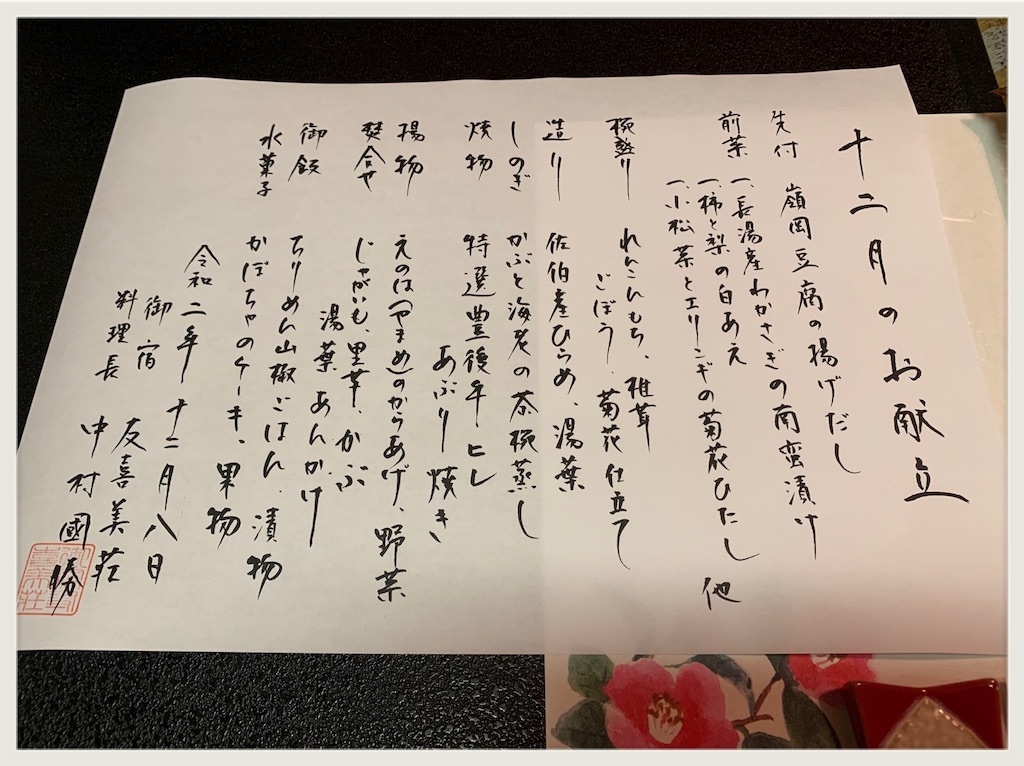 十二月のお献立
先付 嶺岡豆腐の揚げだし
前菜 一、長湯産わかさぎの南蛮漬け
一、柿と梨の白あえ
一、小松菜とエリンギの菊花ひたし 他
椀盛り れんこんもち、椎茸
ごぼう、菊花仕立て
造り 佐伯産ひらめ、湯葉
しのぎ かぶと海老の茶椀蒸し
焼物 特選豊後牛ヒレ
あぶり焼き
揚物 えのは(やまめ)のからあげ、野菜
焚合せ じゃがいも、里芋、かぶ
湯葉あんかけ
御飯 ちりめん山椒ごはん、漬物
水菓子 かぼちゃのケーキ、果物
令和二年十二月八日
御宿 友喜美荘
料理長 中村國勝